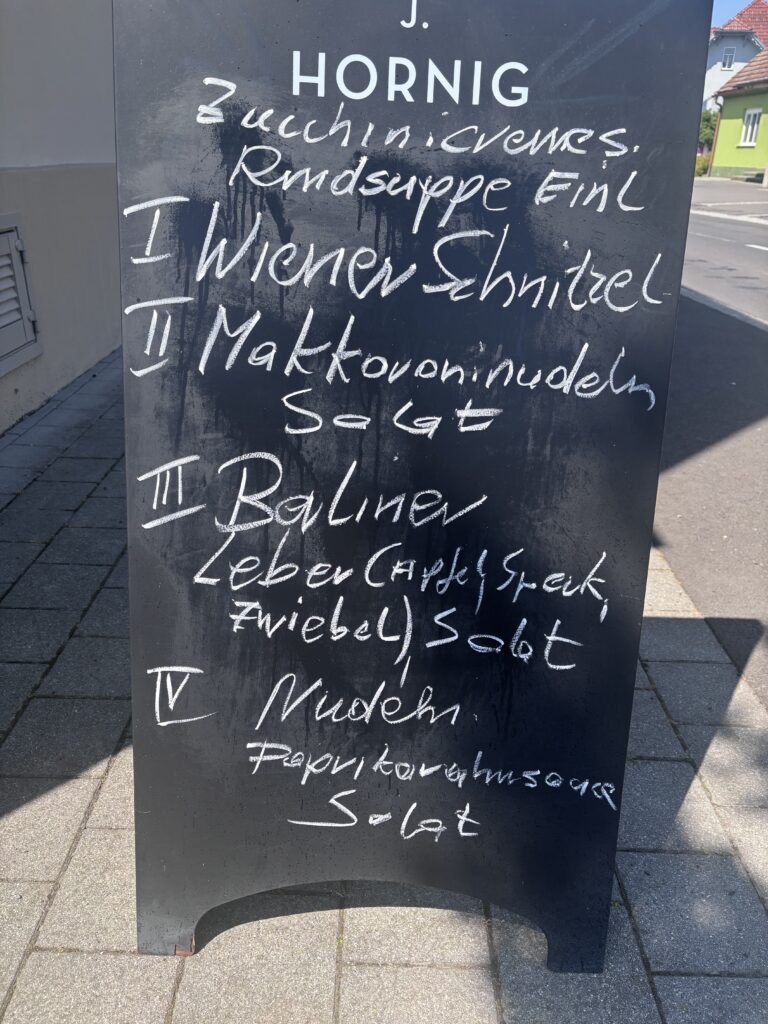 J.
HORNIG
Zucchinicremes.
Rindsuppe Einl
I Wiener Schnitzel
II Makkoroninudeln
Salat
III Berliner
Leber (Apfel, Speck,
Zwiebel), Salat
IV Nudeln
Paprikarahmsoace
Salat